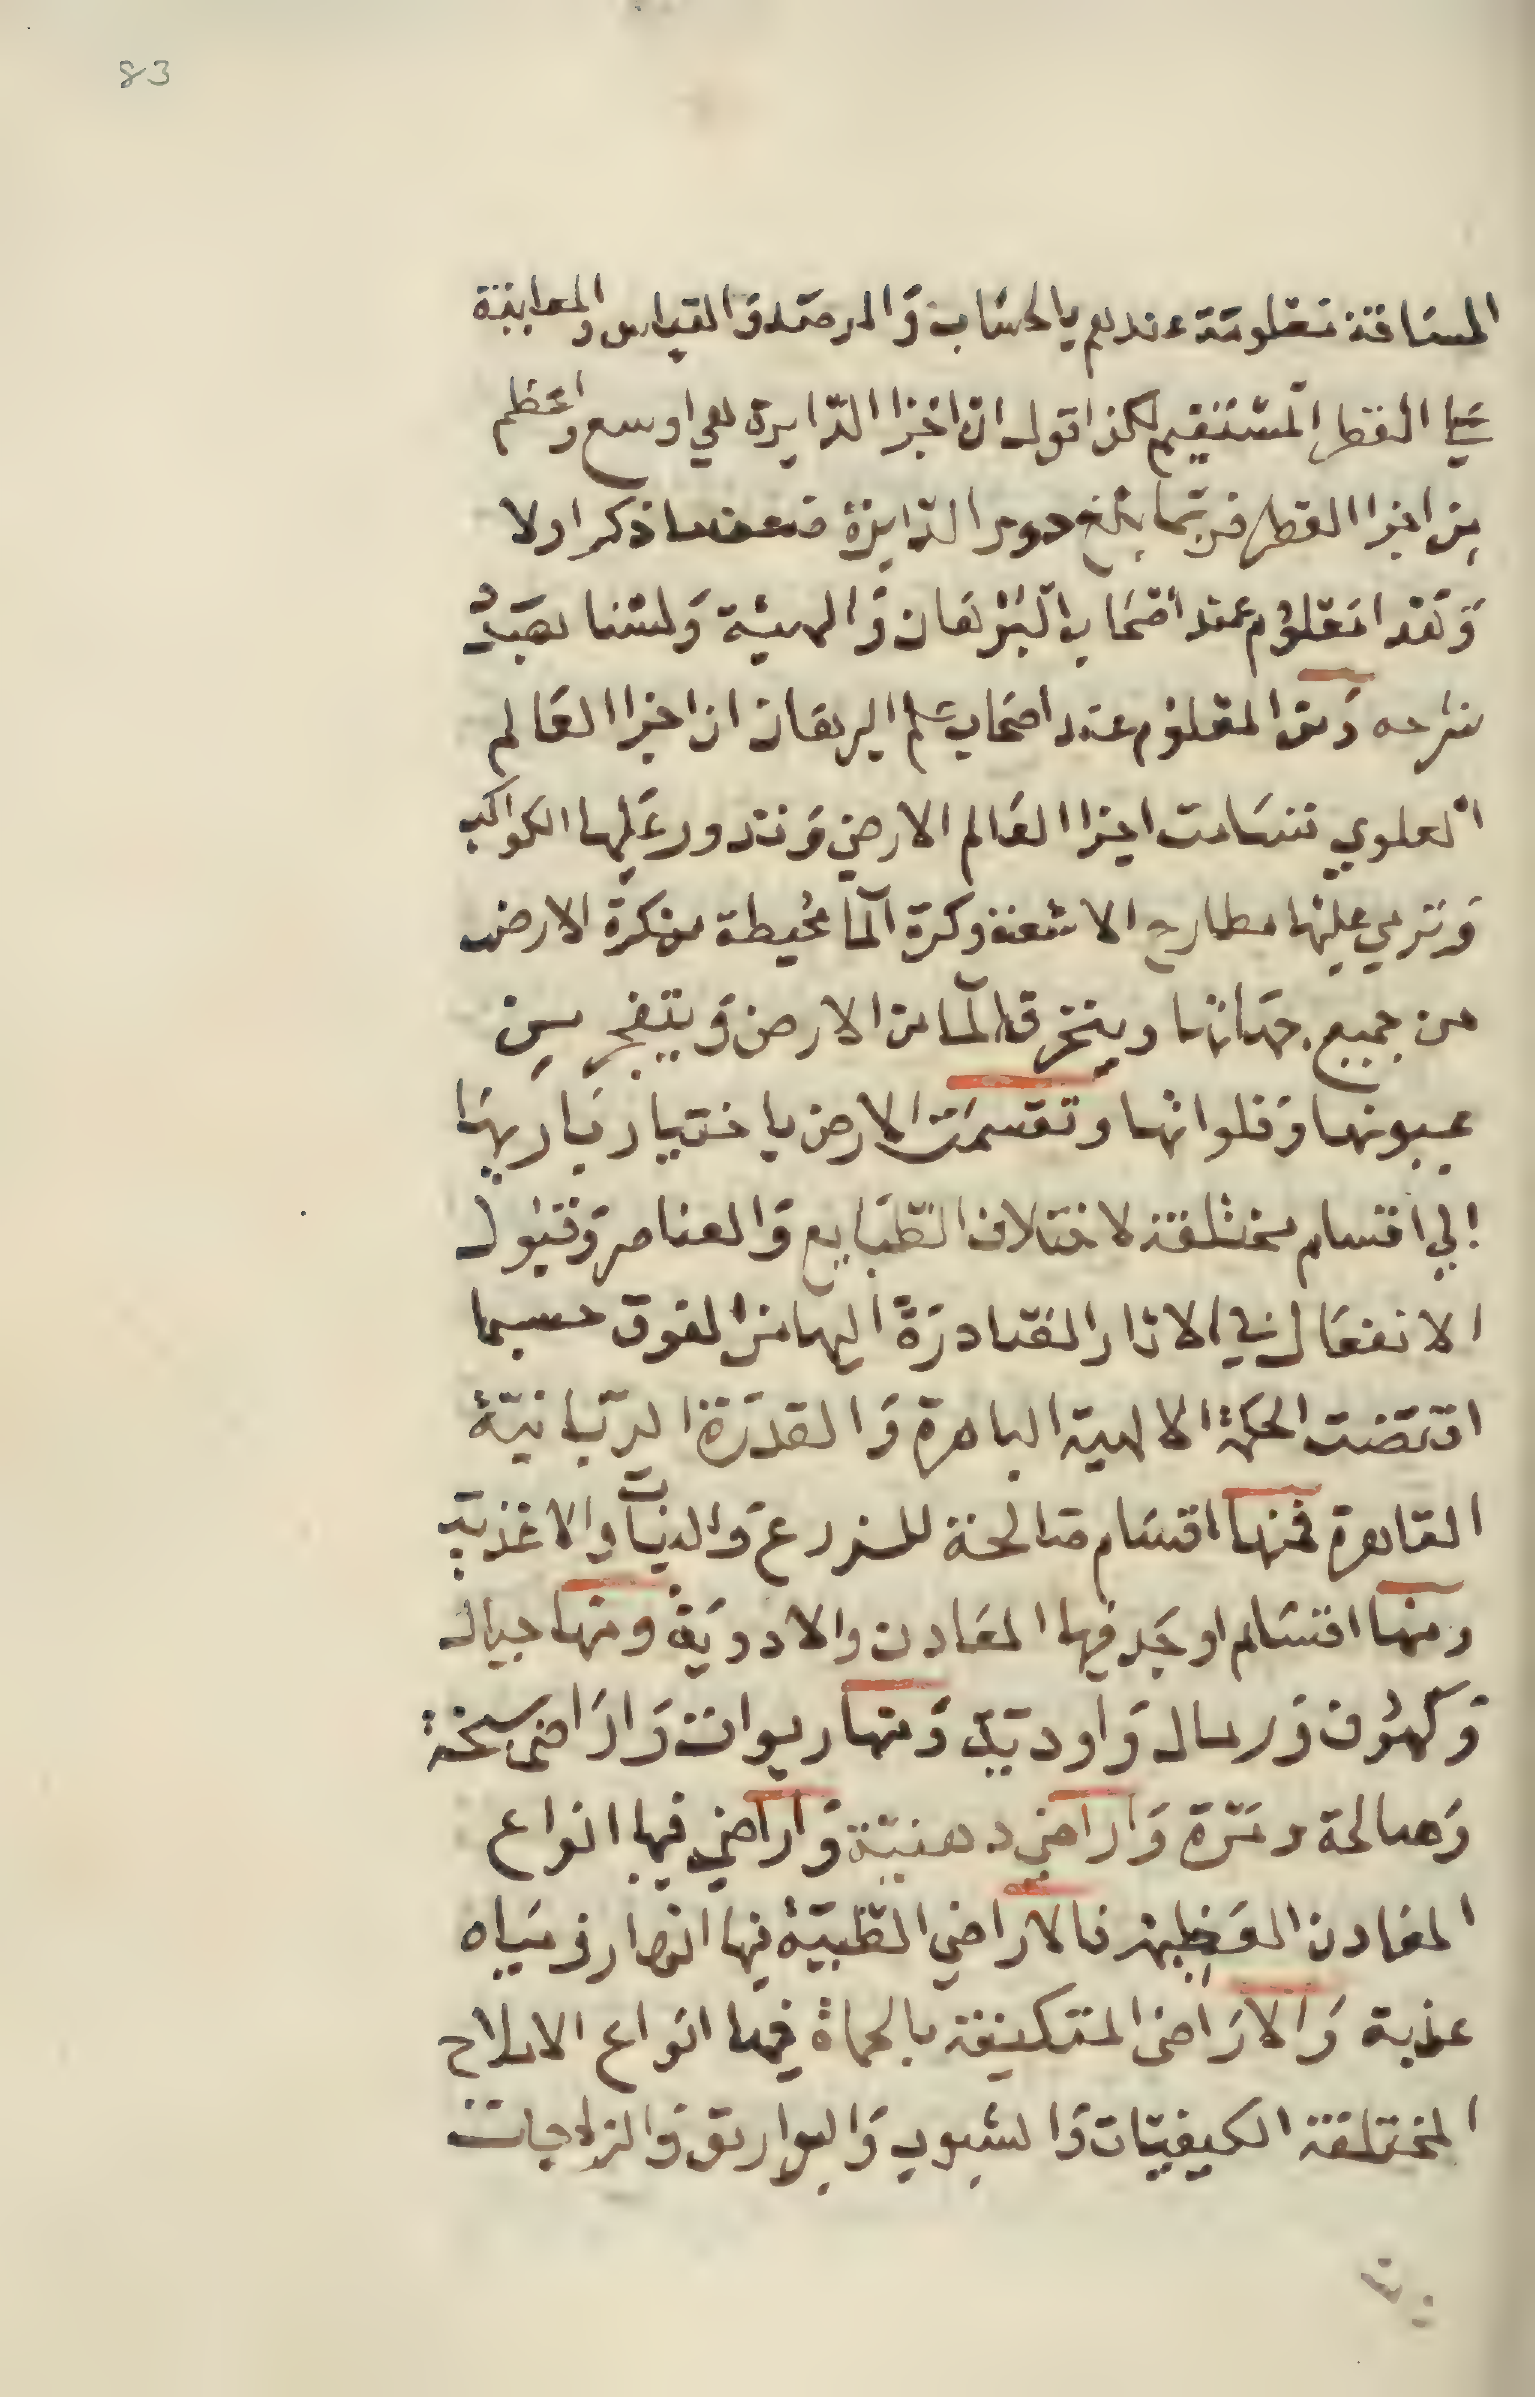 83
المسافة معلومة عندهم بالحساب والرصد والقياس والمعاينة
علي القطر المستقيم لكن اقول ان اجزا الدايرة هي اوسع واعظم
من اجزا القطر فربما بلغ دور الدايرة ضعف ما ذكر اولا
وهذا معلوم عند اصحاب البرهان والهيئة ولسنا بصدد
شرحه ومن المعلوم عند اصحاب علم البرهان ان اجزا العالم
العلوي تسامت اجزا العالم الارضي وتدور عليها الكواكب
وترمي عليها مطارح الاشعة وكرة الما محيطة بكرة الارض
من جميع جهاتها وينخرق الما من الارض ويتفجر من
عيونها وفلواتها وتقسمت الارض باختيار باريها
الي اقسام مختلفة لاختلاف الطبايع والعناصر وقبول
الانفعال في الاثار الصادرة اليها من الفوق حسبما
اقتضت الحكمة الالهية الباهرة والقدرة الربانية
القاهرة فمنها اقسام صالحة للزرع والنبات والاغذية
ومنها اقسام اوجد فيها المعادن والادوية ومنها جبال
وكهوف ورمال واودية ومنها ربوات واراضي سبخة
وصالحة ومرة واراضي دهنية واراضي فيها انواع
المعادن العظيمة فالاراضي الطيبة فيها انهار ومياه
عذبة والاراضي المتكيفة بالحماة فيها انواع الاملاح
المختلفة الكيفيات والشبوب والبوارق والزاجات